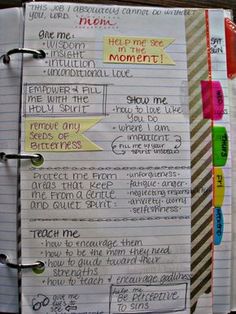 THIS JOB I absolutely CANNOT do without
YOU, LORD.
mom
Give me:
- WISDOM
- INSIGHT
- INTUITION
- UNCONDITIONAL LOVE
HELP ME SEE
IN THE
MOMENT!
EMPOWER & FILL
ME WITH THE
HOLY SPIRIT
SHOW ME
- how to LOVE like
YOU DO
- where I am
impatient
remove any
SEEDS OF
BITTERNESS
PROTECT ME FROM
AREAS THAT KEEP
ME FROM A GENTLE
AND QUIET SPIRIT:
- UNFORGIVENESS
- FATIGUE - ANGER
- ANXIETY - WORRY
- SELFISHNESS
TEACH ME
- how to ENCOURAGE them
- how to be the mom they need
- how to guide toward their
STRENGTHS
- how to TEACH & encourage godliness
BE PERCEPTIVE
TO SINS
SAT
SUN
FRI